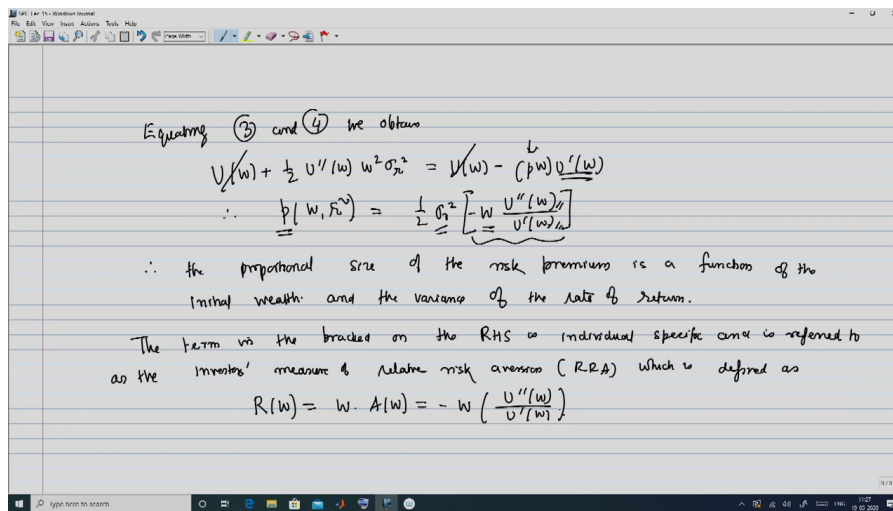 File Edit View Insert Actions Tools Help
Page Width
Equating ③ and ④ we obtain
U(W) + 1/2 U''(W) W² σ_r² = U(W) - (pW) U'(W)
∴ p(W, r̃) = 1/2 σ_r² [-W U''(W)/U'(W)]
∴ the proportional size of the risk premium is a function of the
initial wealth and the variance of the rate of return.
The term in the bracket on the RHS is individual specific and is referred to
as the investors' measure of relative risk aversion (RRA) which is defined as
R(W) = W. A(W) = - W (U''(W)/U'(W)).
9/9
Type here to search
ENG
11:27